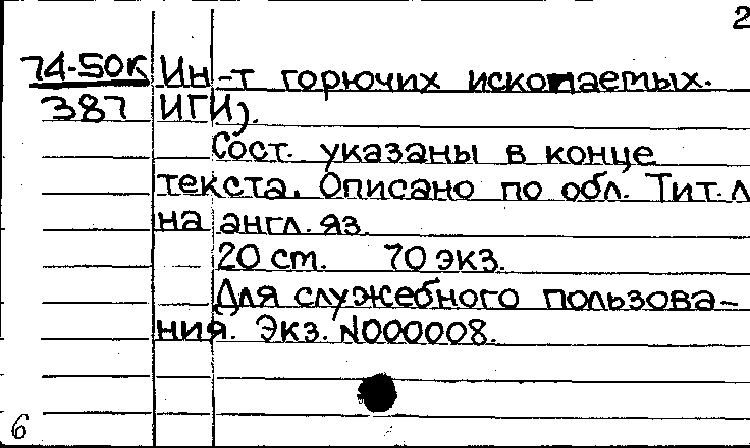 2
74-50К Ин-т горючих ископаемых.
387 ИГИ).
Сост. указаны в конце
текста. Описано по обл. Тит. л
на англ. яз.
20 ст. 70 экз.
Для служебного пользова-
ния. Экз. N000008.
6